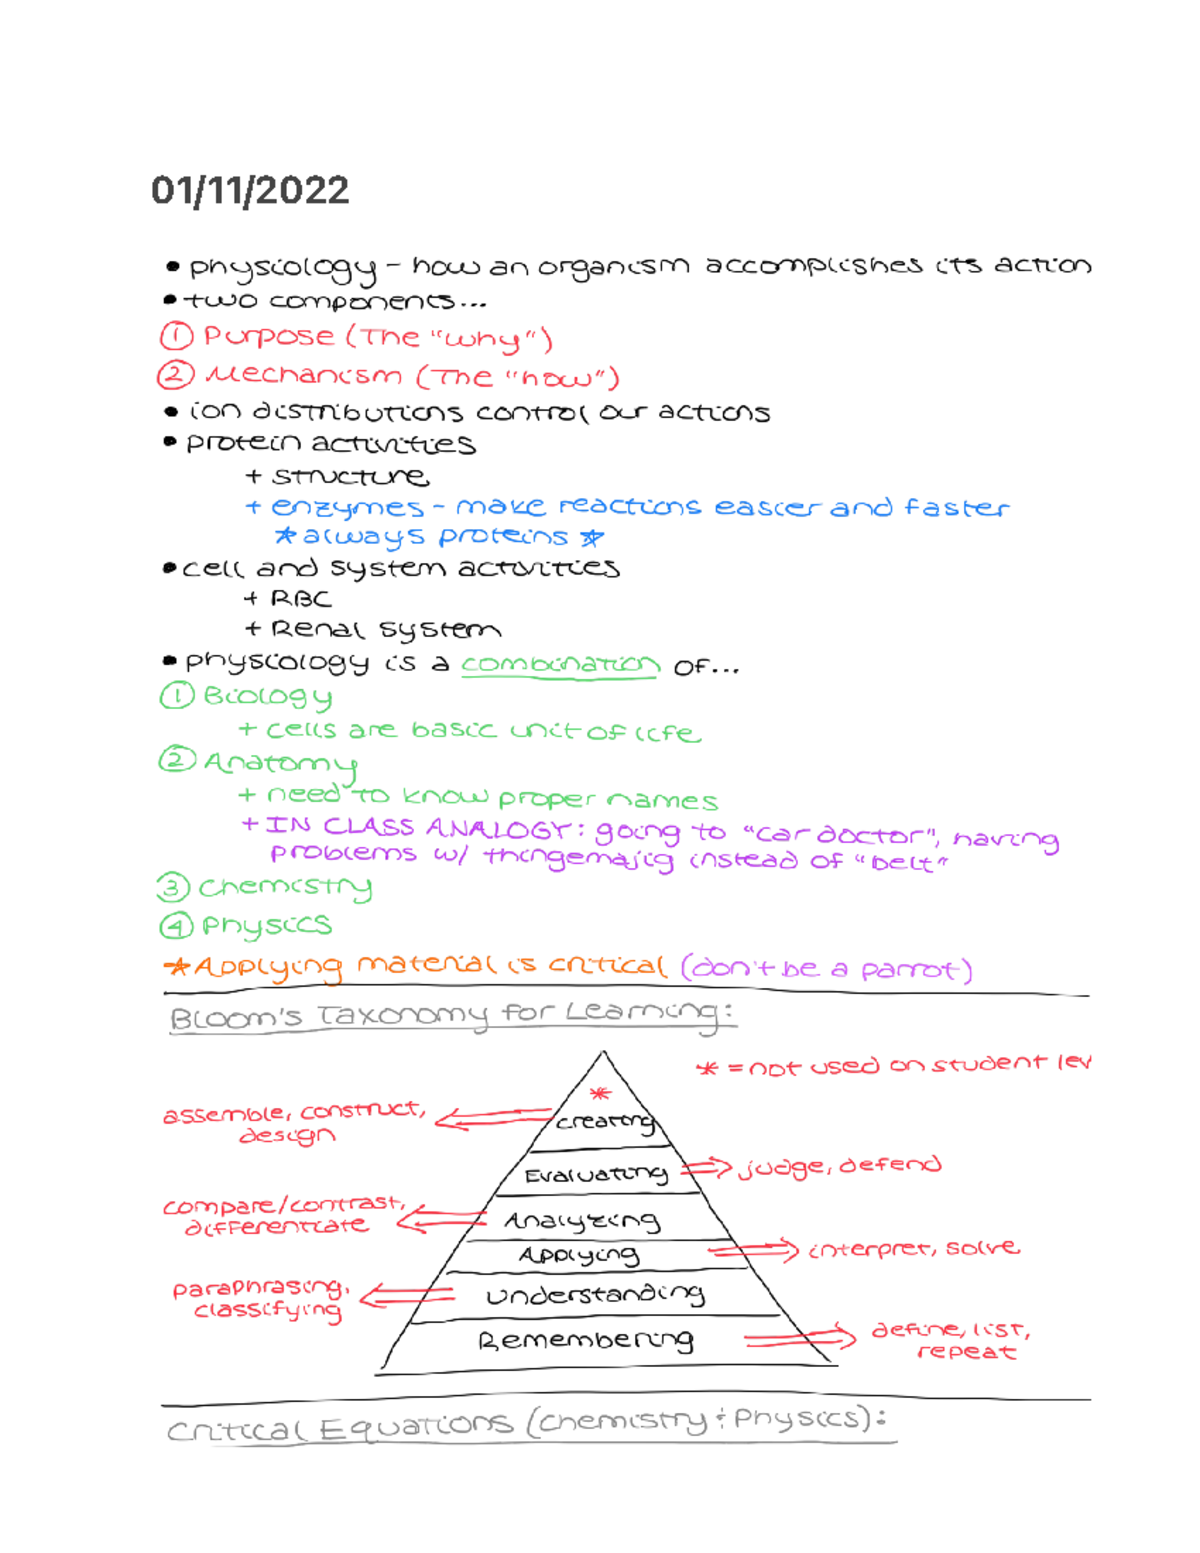 01/11/2022
• physiology - how an organism accomplishes its action
• two components...
① Purpose (The "why")
② Mechanism (The "how")
• ion distributions control our actions
• protein activities
+ structure
+ enzymes - make reactions easier and faster
* always proteins *
• cell and system activities
+ RBC
+ Renal system
• physiology is a combination of...
① Biology
+ cells are basic unit of life
② Anatomy
+ need to know proper names
+ IN CLASS ANALOGY: going to "car doctor", having
problems w/ thingemajig instead of "belt"
③ Chemistry
④ Physics
* Applying material is critical (don't be a parrot)
Bloom's Taxonomy for Learning:
* = not used on student lev
*
assemble, construct,
design
creating
Evaluating
judge, defend
compare/contrast,
differentiate
Analyzing
Applying
interpret, solve
paraphrasing,
classifying
understanding
Remembering
define, list,
repeat
Critical Equations (Chemistry + Physics):